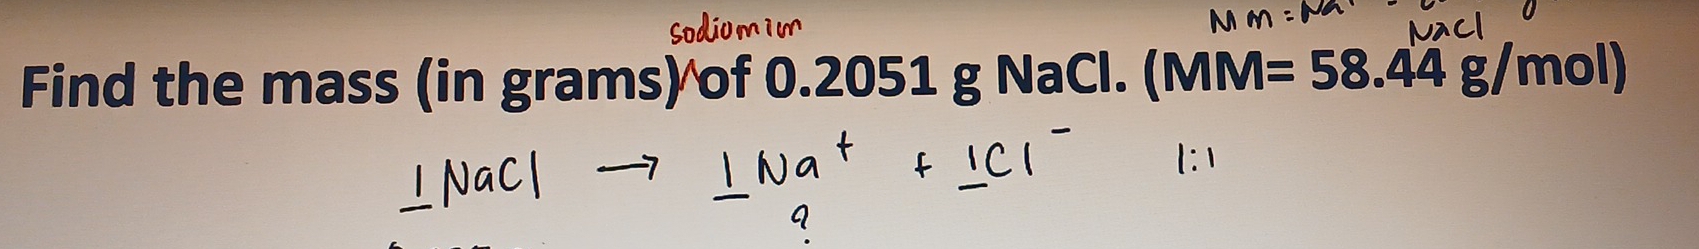 sodiumium
Mm = Na
NaCl
Find the mass (in grams)^of 0.2051 g NaCl. (MM= 58.44 g/mol)
1 NaCl → 1 Na⁺ + 1Cl⁻ 1:1
?